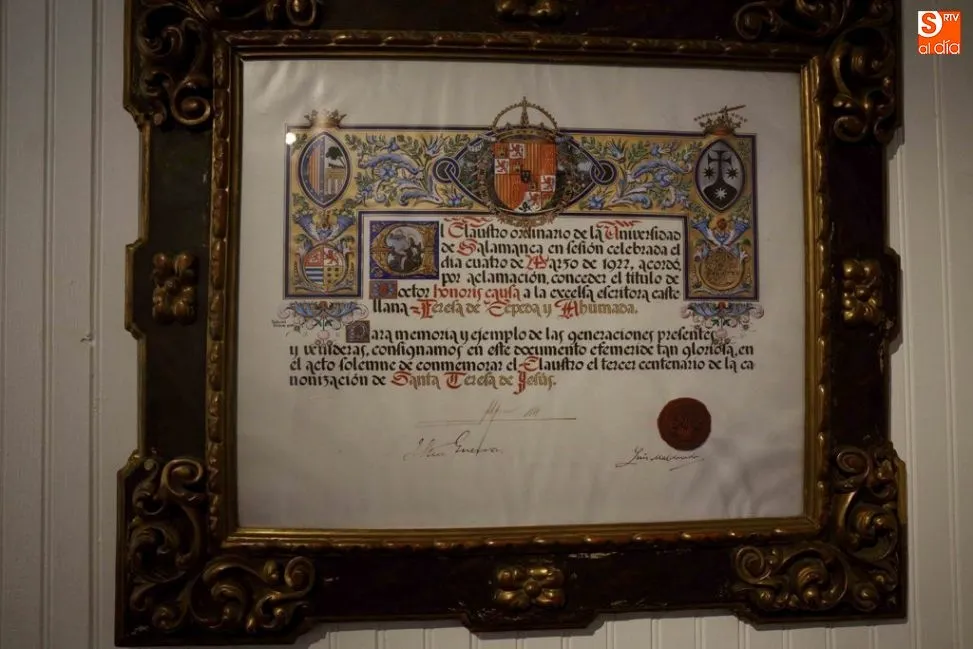 S RTV
al día
El Claustro ordinario de la Universidad
de Salamanca en sesión celebrada el
dia cuatro de Marzo de 1922, acordó,
por aclamación, conceder el título de
Doctor honoris causa a la excelsa escritora caste
llana Teresa de Cepeda y Ahumada.
Para memoria y ejemplo de las generaciones presentes
y venideras, consignamos en este documento efemeride tan gloriosa, en
el acto solemne de conmemorar el Claustro el tercer centenario de la ca
nonización de Santa Teresa de Jesús.
Luis Maldonado